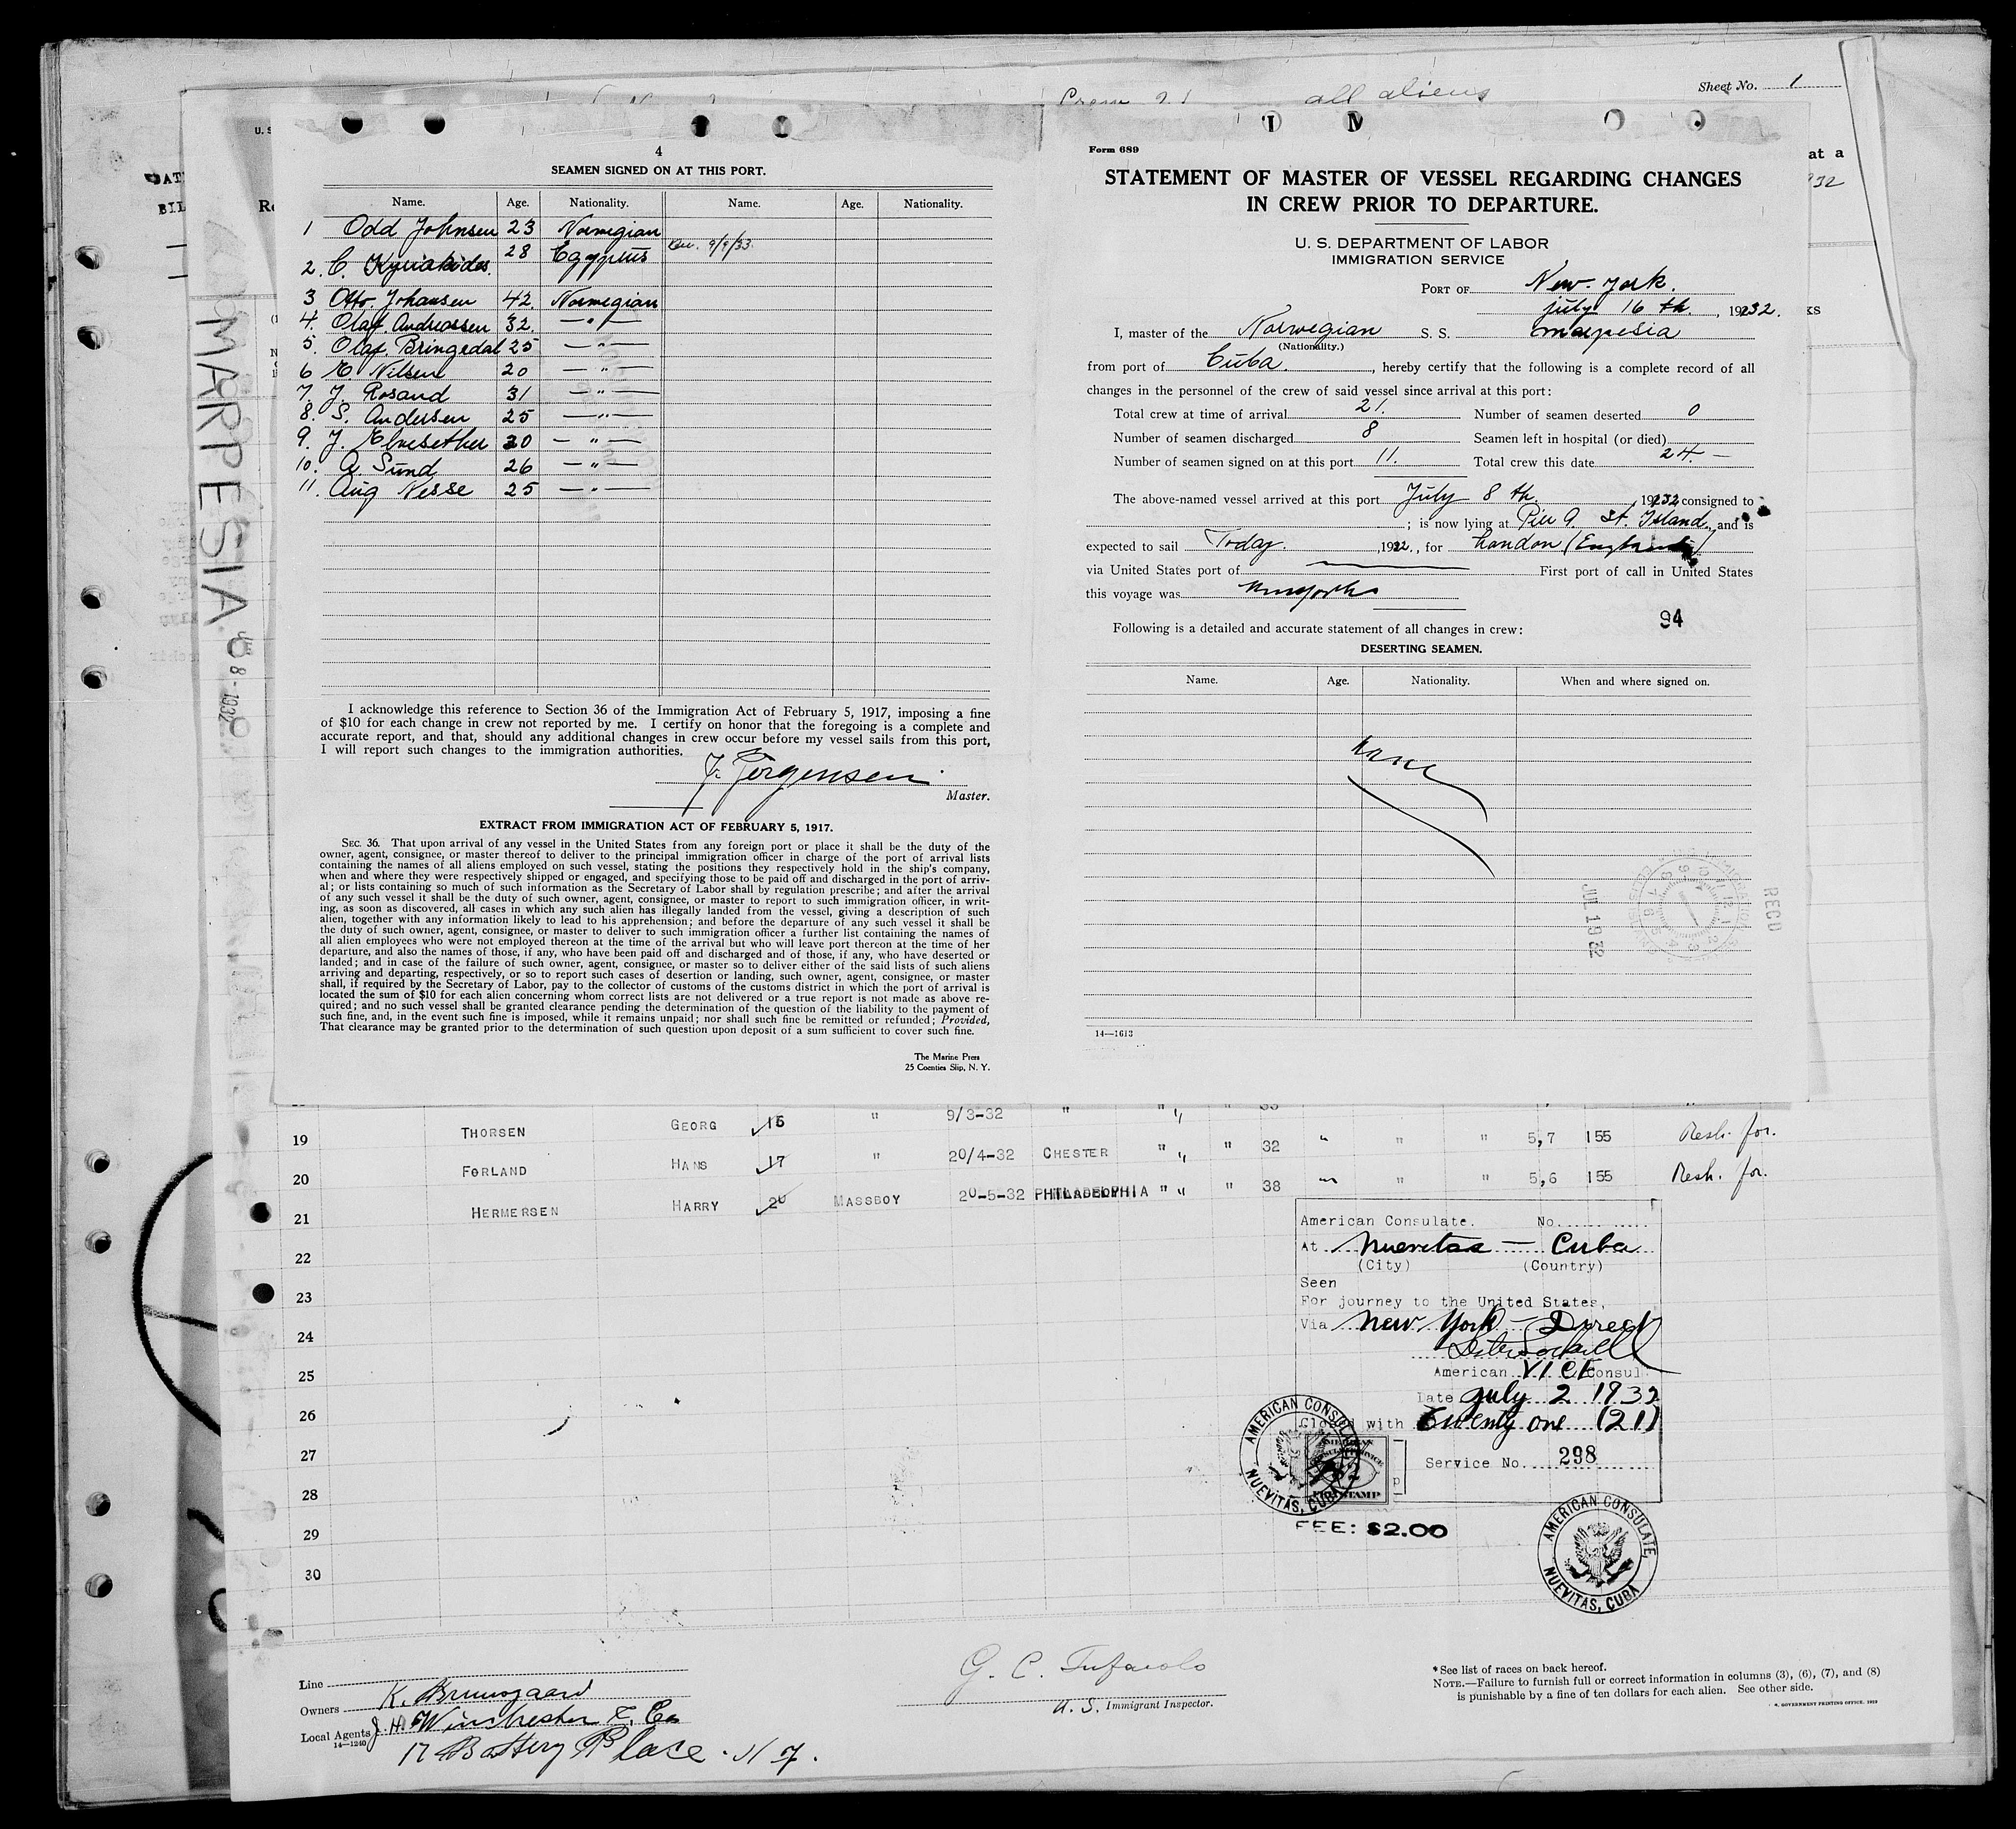 all aliens
Sheet No. 1
4
SEAMEN SIGNED ON AT THIS PORT.
Name. Age. Nationality. Name. Age. Nationality.
1 Odd Johnsen 23 Norwegian
2. C. Kyriakides. 28 Egyptiis 9/9/33.
3 Otto. Johansen 42. Norwegian
4. Olaf. Andreassen 32. — " —
5. Olaf. Bringedal 25 — " —
6 E. Nilsen 20 — " —
7. J. Rosand 31 — " —
8. S. Andersen 25 — " —
9. J. Elnesether 20 — " —
10. A. Sund 26 — " —
11. Aug Nesse 25 — " —
I acknowledge this reference to Section 36 of the Immigration Act of February 5, 1917, imposing a fine
of $10 for each change in crew not reported by me. I certify on honor that the foregoing is a complete and
accurate report, and that, should any additional changes in crew occur before my vessel sails from this port,
I will report such changes to the immigration authorities.
F. Jorgensen.
Master.
EXTRACT FROM IMMIGRATION ACT OF FEBRUARY 5, 1917.
SEC. 36. That upon arrival of any vessel in the United States from any foreign port or place it shall be the duty of the
owner, agent, consignee, or master thereof to deliver to the principal immigration officer in charge of the port of arrival lists
containing the names of all aliens employed on such vessel, stating the positions they respectively hold in the ship's company,
when and where they were respectively shipped or engaged, and specifying those to be paid off and discharged in the port of arriv-
al; or lists containing so much of such information as the Secretary of Labor shall by regulation prescribe; and after the arrival
of any such vessel it shall be the duty of such owner, agent, consignee, or master to report to such immigration officer, in writ-
ing, as soon as discovered, all cases in which any such alien has illegally landed from the vessel, giving a description of such
alien, together with any information likely to lead to his apprehension; and before the departure of any such vessel it shall be
the duty of such owner, agent, consignee, or master to deliver to such immigration officer a further list containing the names of
all alien employees who were not employed thereon at the time of the arrival but who will leave port thereon at the time of her
departure, and also the names of those, if any, who have been paid off and discharged and of those, if any, who have deserted or
landed; and in case of the failure of such owner, agent, consignee, or master so to deliver either of the said lists of such aliens
arriving and departing, respectively, or so to report such cases of desertion or landing, such owner, agent, consignee, or master
shall, if required by the Secretary of Labor, pay to the collector of customs of the customs district in which the port of arrival is
located the sum of $10 for each alien concerning whom correct lists are not delivered or a true report is not made as above re-
quired; and no such vessel shall be granted clearance pending the determination of the question of the liability to the payment of
such fine, and, in the event such fine is imposed, while it remains unpaid; nor shall such fine be remitted or refunded; Provided,
That clearance may be granted prior to the determination of such question upon deposit of a sum sufficient to cover such fine.
The Marine Press
25 Coenties Slip, N. Y.
Form 689
STATEMENT OF MASTER OF VESSEL REGARDING CHANGES
IN CREW PRIOR TO DEPARTURE.
U. S. DEPARTMENT OF LABOR
IMMIGRATION SERVICE
PORT OF New-York.
july 16 th., 1932.
I, master of the Norwegian S. S. marpesia
(Nationality.)
from port of Cuba., hereby certify that the following is a complete record of all
changes in the personnel of the crew of said vessel since arrival at this port:
Total crew at time of arrival 21. Number of seamen deserted 0
Number of seamen discharged 8 Seamen left in hospital (or died)
Number of seamen signed on at this port 11. Total crew this date 24.—
The above-named vessel arrived at this port July 8 th., 1932 consigned to
; is now lying at Pier 9. St. Island., and is
expected to sail Today., 1932., for London (England)
via United States port of First port of call in United States
this voyage was Newyork
94
Following is a detailed and accurate statement of all changes in crew:
DESERTING SEAMEN.
Name. Age. Nationality. When and where signed on.
none
JUL 19 32
REC'D
14—1613
MARPESIA
8 - 1932
9/3-32
19 THORSEN GEORG 16 " 20/4-32 CHESTER " " " 32 " " " 5,7 155 Resh. for.
20 FØRLAND HANS 17 " " " " 5,6 155 Resh. for.
21 HERMERSEN HARRY 20 MASSBOY 20-5-32 PHILADELPHIA " " " 38
22
23
24
25
26
27
28
29
30
American Consulate. No.
At Nuevitas — Cuba
(City) (Country)
Seen
For journey to the United States,
Via New York — Direct
American VICE Consul
Date July 2 1932
Closed with Twenty one (21)
Service No. 298
AMERICAN CONSULATE
NUEVITAS, CUBA
FEE: $2.00
AMERICAN CONSULATE,
NUEVITAS, CUBA
Line
Owners K. Bruusgaard
Local Agents J. H. Winchester & Co
14—1240
17 Battery Place. N Y.
G. C. Tufarolo
U. S. Immigrant Inspector.
*See list of races on back hereof.
NOTE.—Failure to furnish full or correct information in columns (3), (6), (7), and (8)
is punishable by a fine of ten dollars for each alien. See other side.